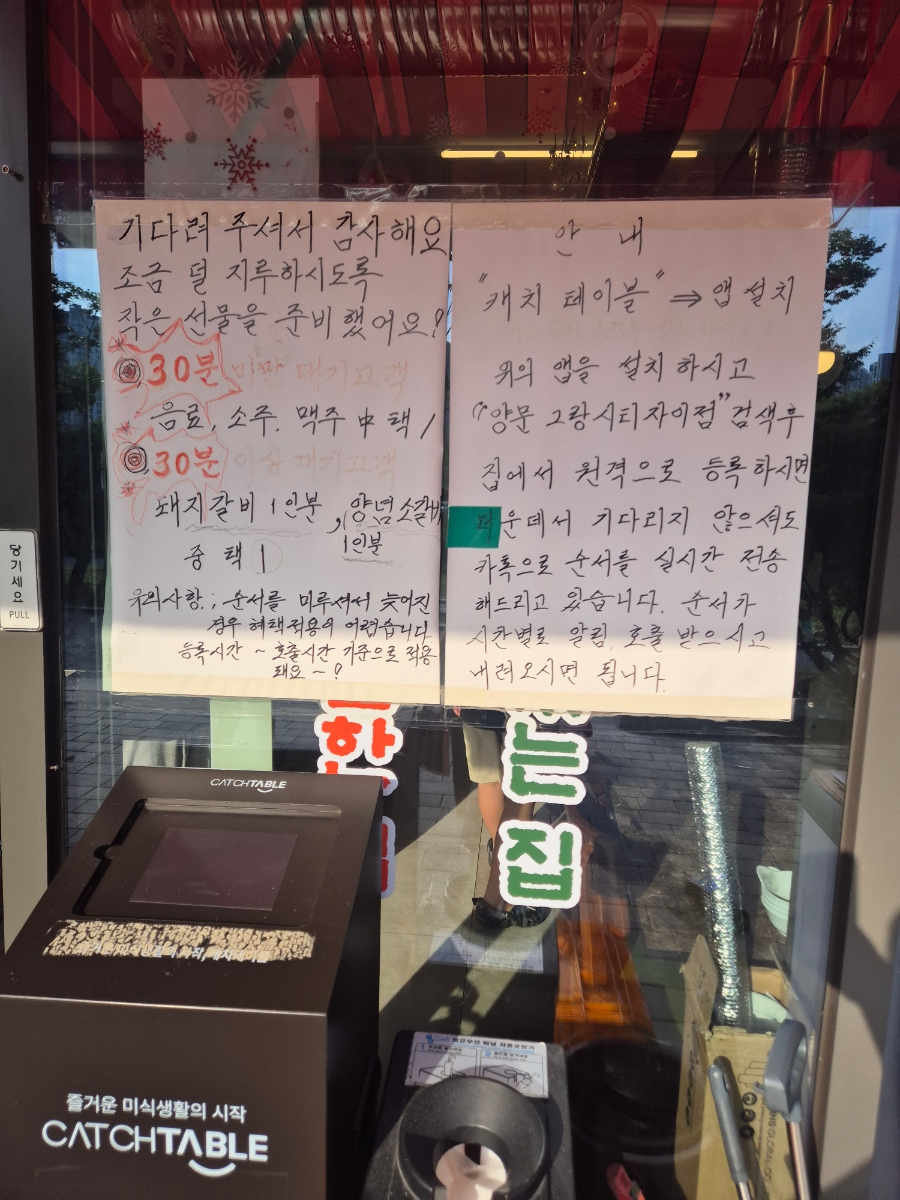 기다려 주셔서 감사해요
조금 덜 지루하시도록
작은 선물을 준비했어요?
30분 미만 대기고객
음료, 소주, 맥주 中 택 1
30분 이상 대기고객
돼지갈비 1인분, 양념소갈비
1인분
중 택 1
유의사항 ; 순서를 미루셔서 늦어진
경우 혜택적용이 어렵습니다
등록시간 ~ 호출시간 기준으로 적용
돼요 ~ ?
안 내
"캐치 테이블" ⇒ 앱 설치
위의 앱을 설치 하시고
"양문 그랑시티자이점" 검색후
집에서 원격으로 등록하시면
더운데서 기다리지 않으셔도
카톡으로 순서를 실시간 전송
해드리고 있습니다. 순서가
시간별로 알림, 호출 받으시고
내려오시면 됩니다.
당기세요
PULL
하
는
집
CATCHTABLE
즐거운 미식생활의 시작
CATCHTABLE